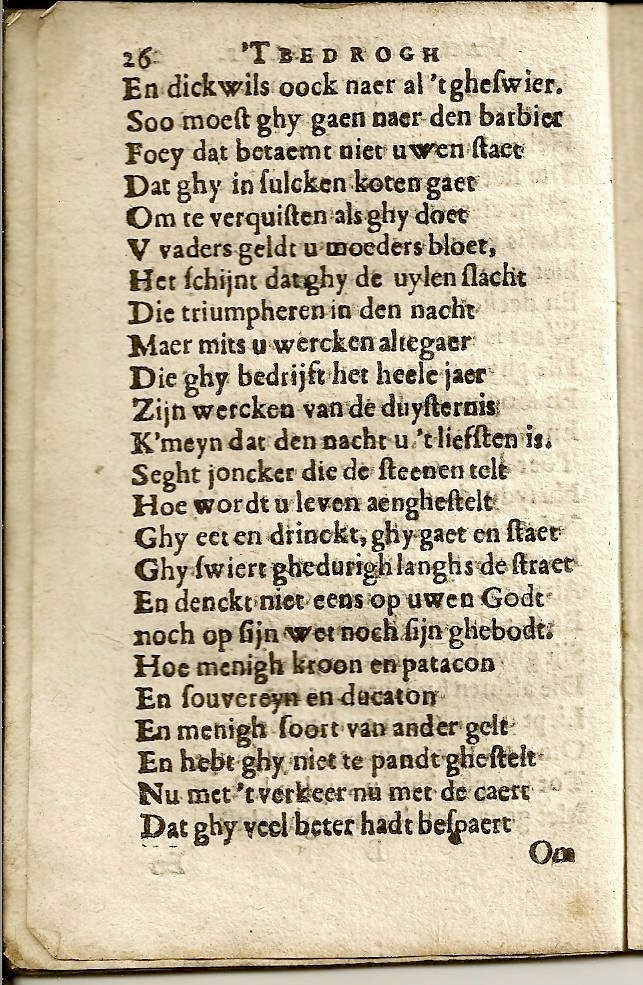 26 'T BEDROGH
En dickwils oock naer al 't gheſwier.
Soo moeſt ghy gaen naer den barbier
Foey dat betaemt niet uwen ſtaet
Dat ghy in ſulcken koten gaet
Om te verquiſten als ghy doet
V vaders geldt u moeders bloet,
Het ſchijnt dat ghy de uylen ſlacht
Die triumpheren in den nacht
Maer mits u wercken altegaer
Die ghy bedrijft het heele jaer
Zijn wercken van de duyſternis
K'meyn dat den nacht u 't liefſten is.
Seght joncker die de ſteenen telt
Hoe wordt u leven aengheſtelt
Ghy eet en drinckt, ghy gaet en ſtaet
Ghy ſwiert ghedurigh langhs de ſtraet
En denckt niet eens op uwen Godt
noch op ſijn wet noch ſijn ghebodt.
Hoe menigh kroon en patacon
En ſouvereyn en ducaton
En menigh ſoort van ander gelt
En hebt ghy niet te pandt gheſtelt
Nu met 't verkeer nu met de caert
Dat ghy veel beter hadt beſpaert
Om